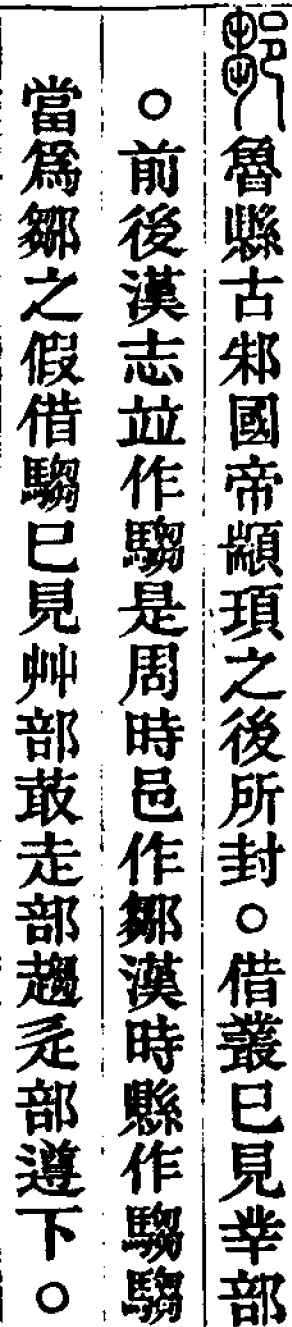 鄒魯縣古邾國帝顓頊之後所封○借叢巳見丵部
○前後漢志竝作騶是周時邑作鄒漢時縣作騶騶
當爲鄒之假借騶巳見艸部菆走部趨辵部遵下○